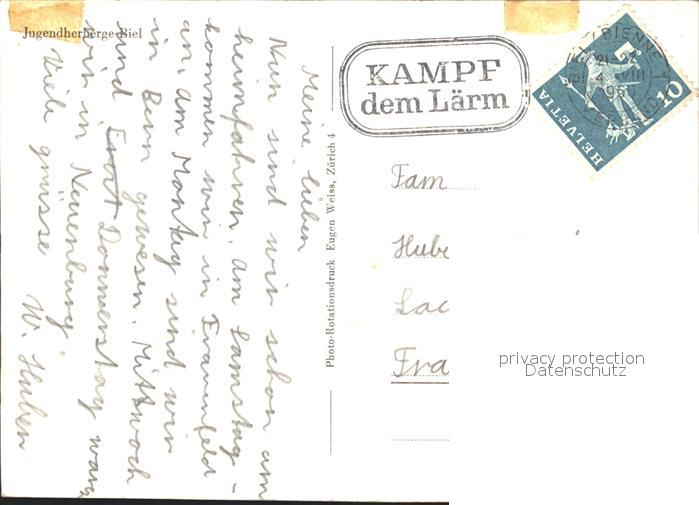 Jugendherberge Biel
Meine lieben
Nun sind wir schon am
heimfahren. Am Samstag-
kommen wir in Frauenfeld
an. Am Montag sind wir
in Bern gewesen. Mittwoch
und Donnerstag waren
wir in Neuenburg.
Viele grüsse W. Huber
Photo-Rotationsdruck Eugen Weiss, Zürich 4
KAMPF
dem Lärm
BIENNE 1
HELVETIA
10
Fam
Hube
Fra
privacy protection
Datenschutz